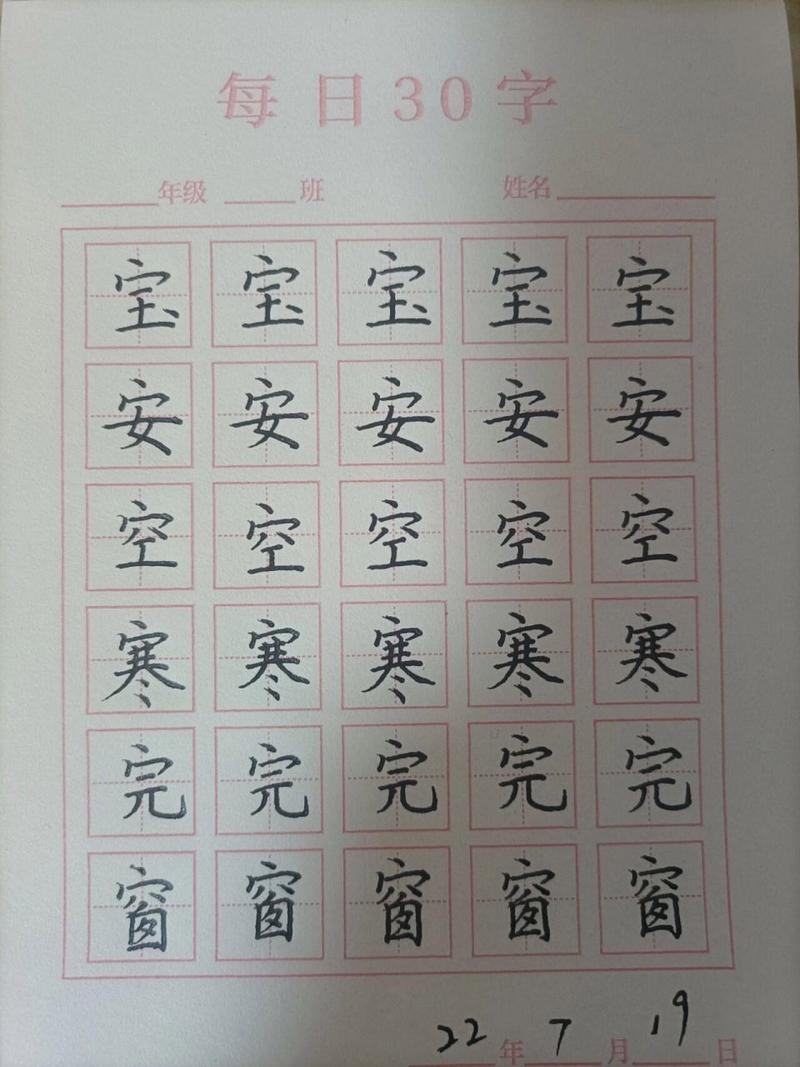 每日30字
年级 班 姓名
宝宝宝宝宝
安安安安安
空空空空空
寒寒寒寒寒
完完完完完
窗窗窗窗窗
22年7月19日